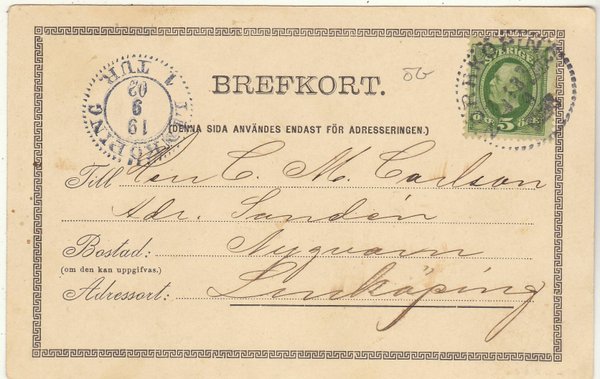 SVERIGE
5 ÖRE
LINKÖPING
1 TUR
19
9
02
BREFKORT.
(DENNA SIDA ANVÄNDES ENDAST FÖR ADRESSERINGEN.)
Till C. M. Carlson
Adr. Sandén
Bostad: Nygvarn
(om den kan uppgifvas,)
Adressort: Linköping